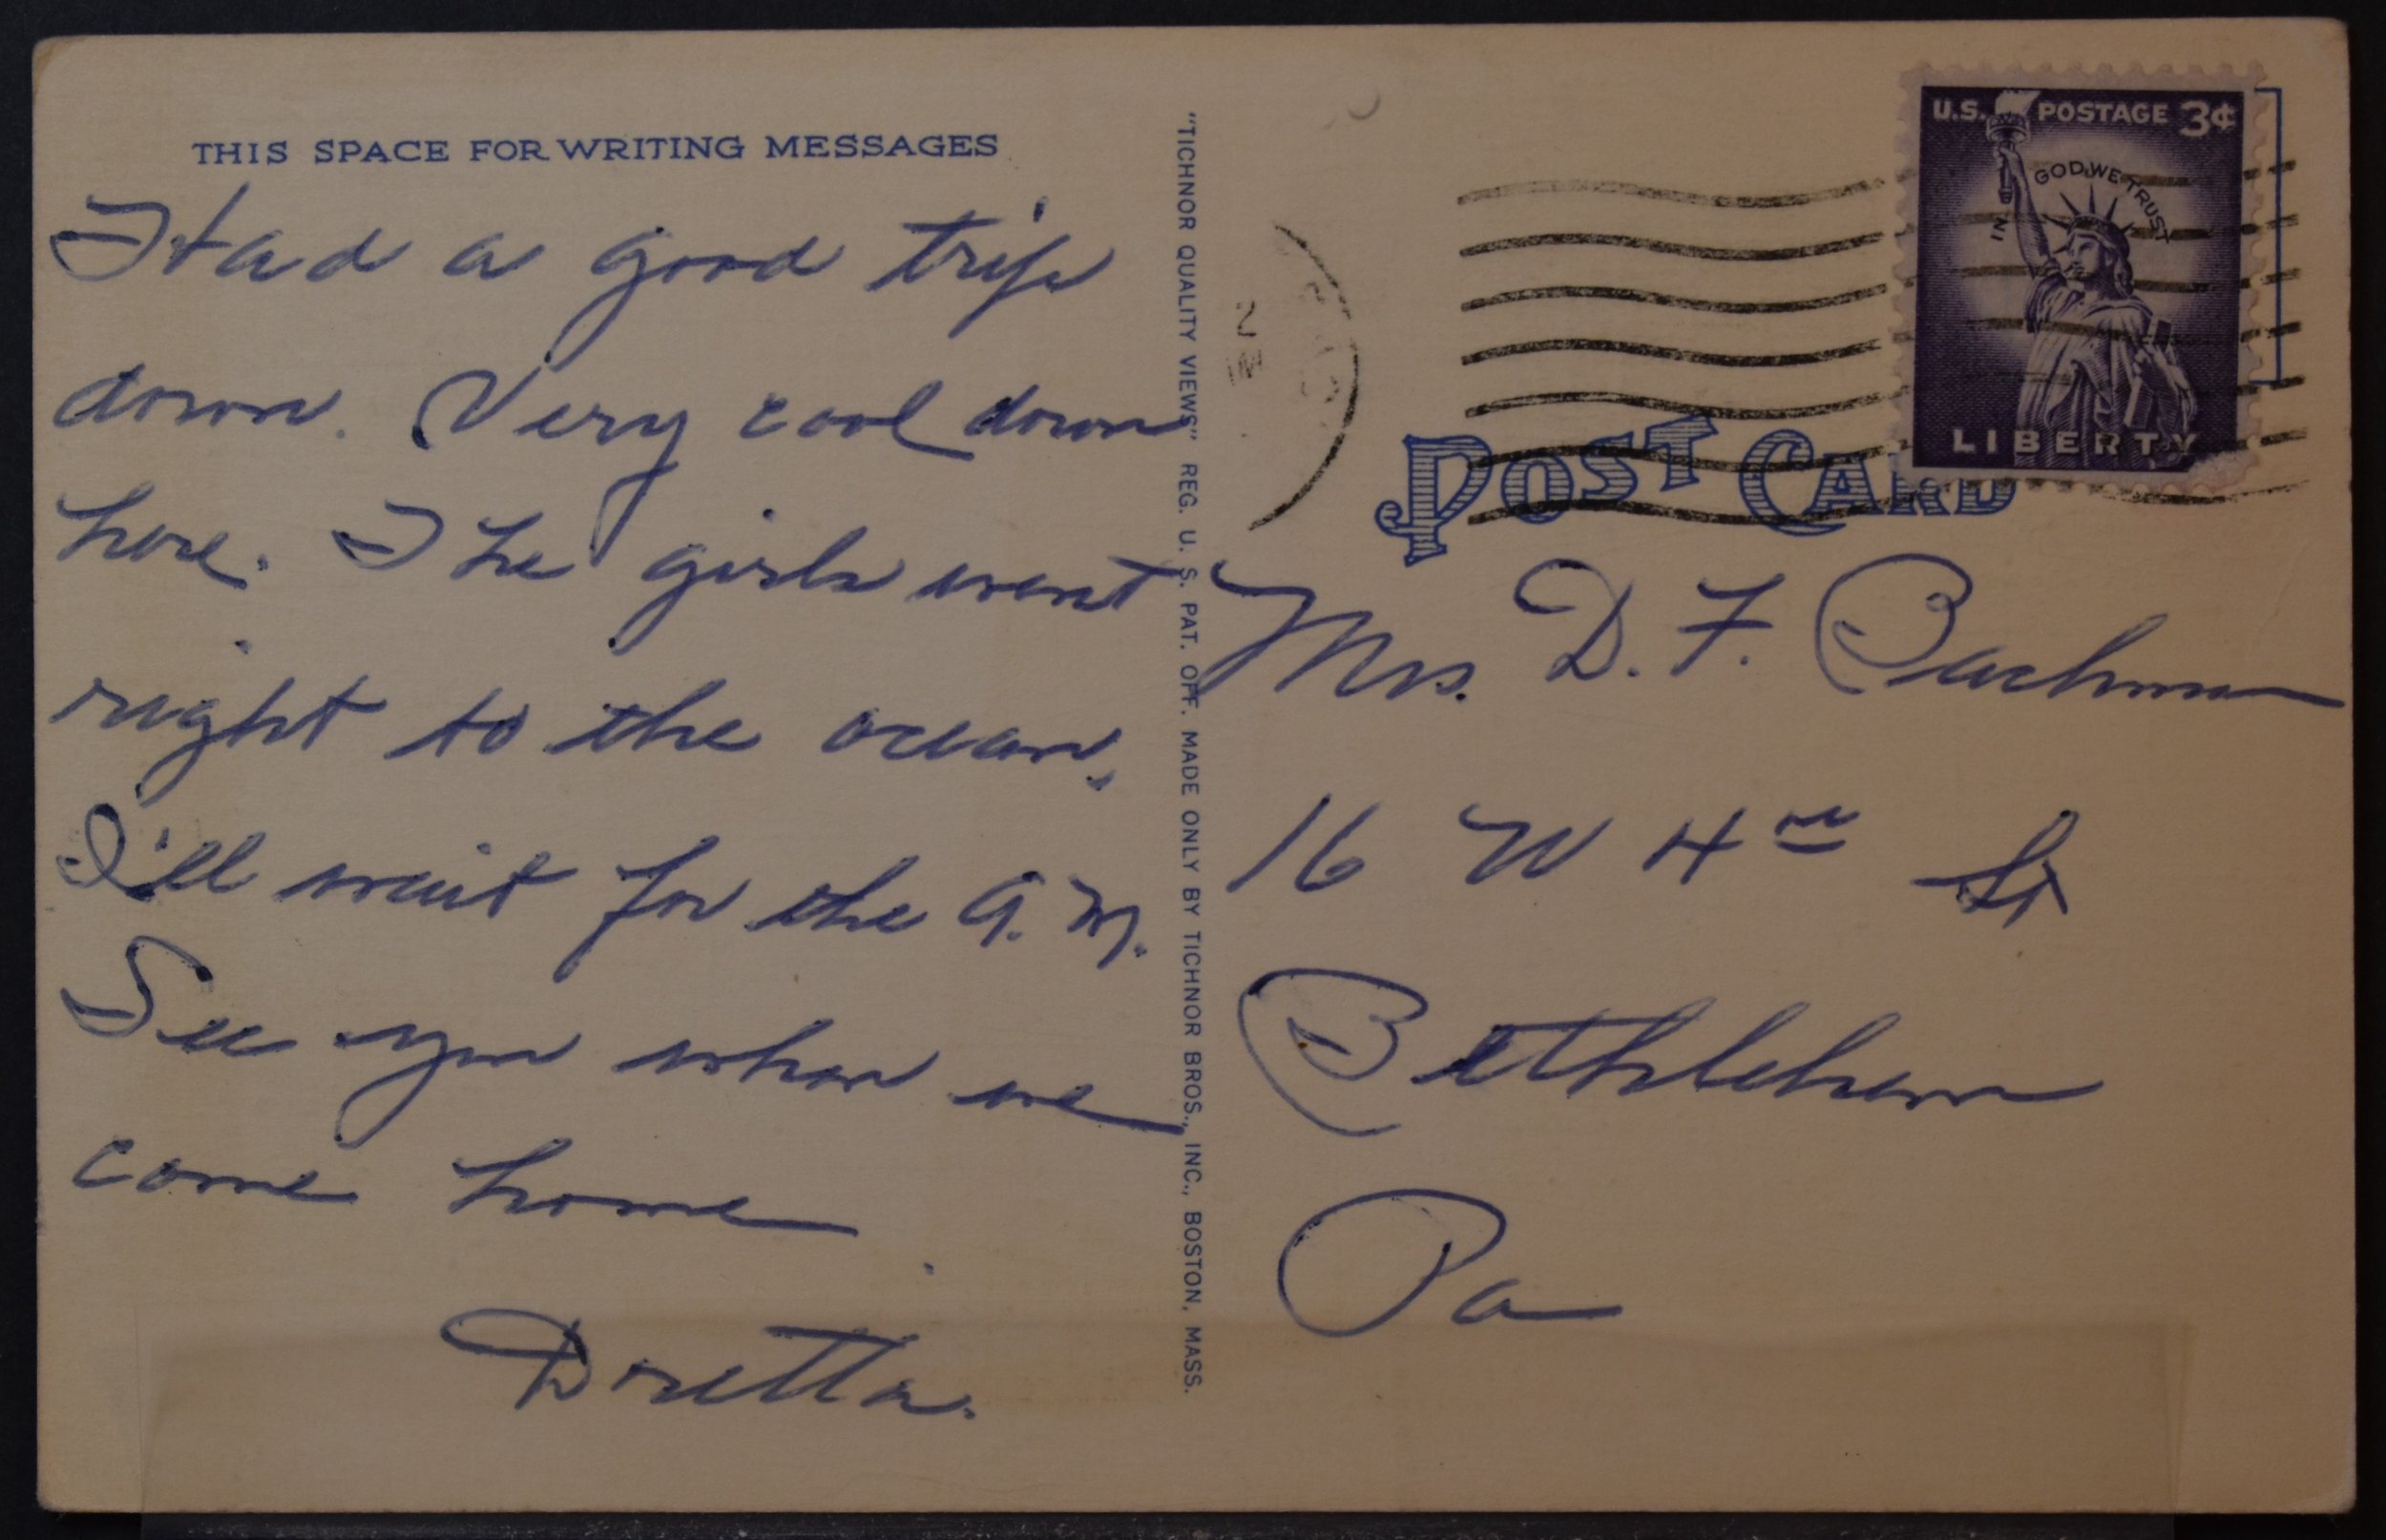 THIS SPACE FOR WRITING MESSAGES
Had a good trip
down. Very cool down
here. The girls went
right to the ocean.
I'll wait for the A.M.
See you when we
come home
Dretta.
"TICHNOR QUALITY VIEWS" REG. U. S. PAT. OFF. MADE ONLY BY TICHNOR BROS., INC., BOSTON, MASS.
U.S. POSTAGE 3¢
IN GOD WE TRUST
LIBERTY
POST CARD
Mrs. D. F. Bachman
16 W 4th St
Bethlehem
Pa